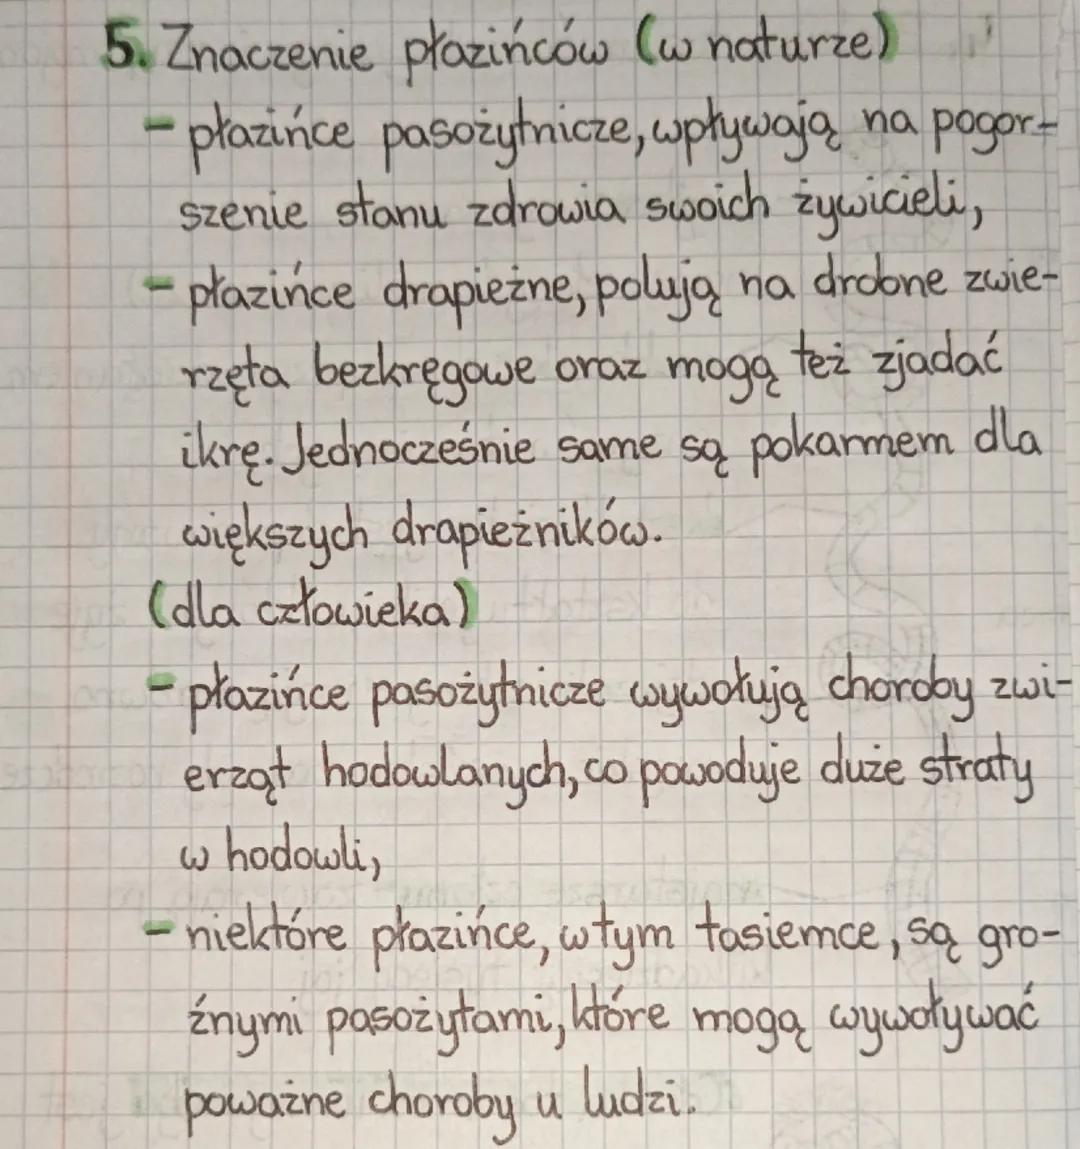 5. Znaczenie płazińców (w naturze)
- płazińce pasożytnicze, wpływają na pogor-
szenie stanu zdrowia swoich żywicieli,
- płazińce drapieżne, polują na drobne zwie-
rzęta bezkręgowe oraz mogą też zjadać
ikrę. Jednocześnie same są pokarmem dla
większych drapieżników.
(dla człowieka)
- płazińce pasożytnicze wywołują choroby zwi-
erząt hodowlanych, co powoduje duże straty
w hodowli,
- niektóre płazińce, w tym tasiemce, są gro-
źnymi pasożytami, które mogą wywoływać
poważne choroby u ludzi.